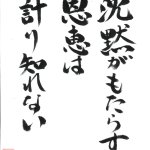 沈黙がもたらす
恩恵は
計り知れない